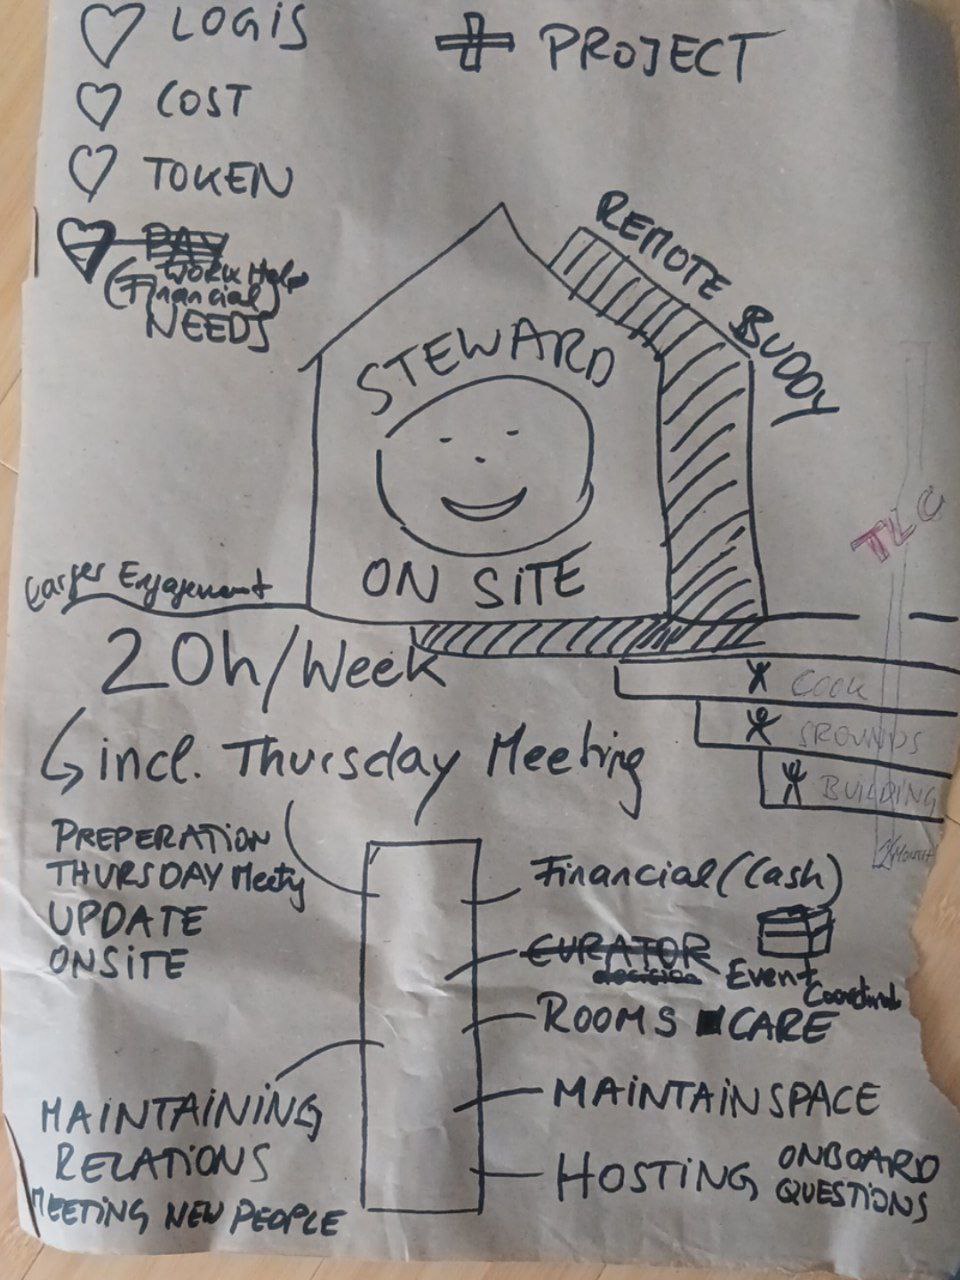 LOGIS
+ PROJECT
COST
TOKEN
PAY
WORK Help
(Financial)
NEEDS
REMOTE BUDDY
STEWARD
ON SITE
TLC
Larger Engagement
20h/Week
COOK
GROUNDS
BUILDING
incl. Thursday Meeting
PREPERATION
THURSDAY Meety
UPDATE
ONSITE
Financial (Cash)
CURATOR
decision
Event
Coordinat
ROOMS CARE
MAINTAINING
RELATIONS
MEETING NEW PEOPLE
MAINTAIN SPACE
HOSTING ONBOARD
QUESTIONS